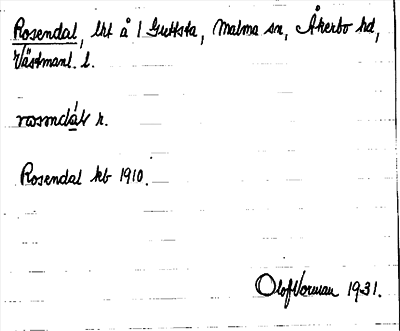 Rosendal, lht å 1 Guttsta, Malma sn, Åkerbo hd,
Västmanl. l.
rosenda̲l r.
Rosendal kb 1910.
Olof Norman 1931.